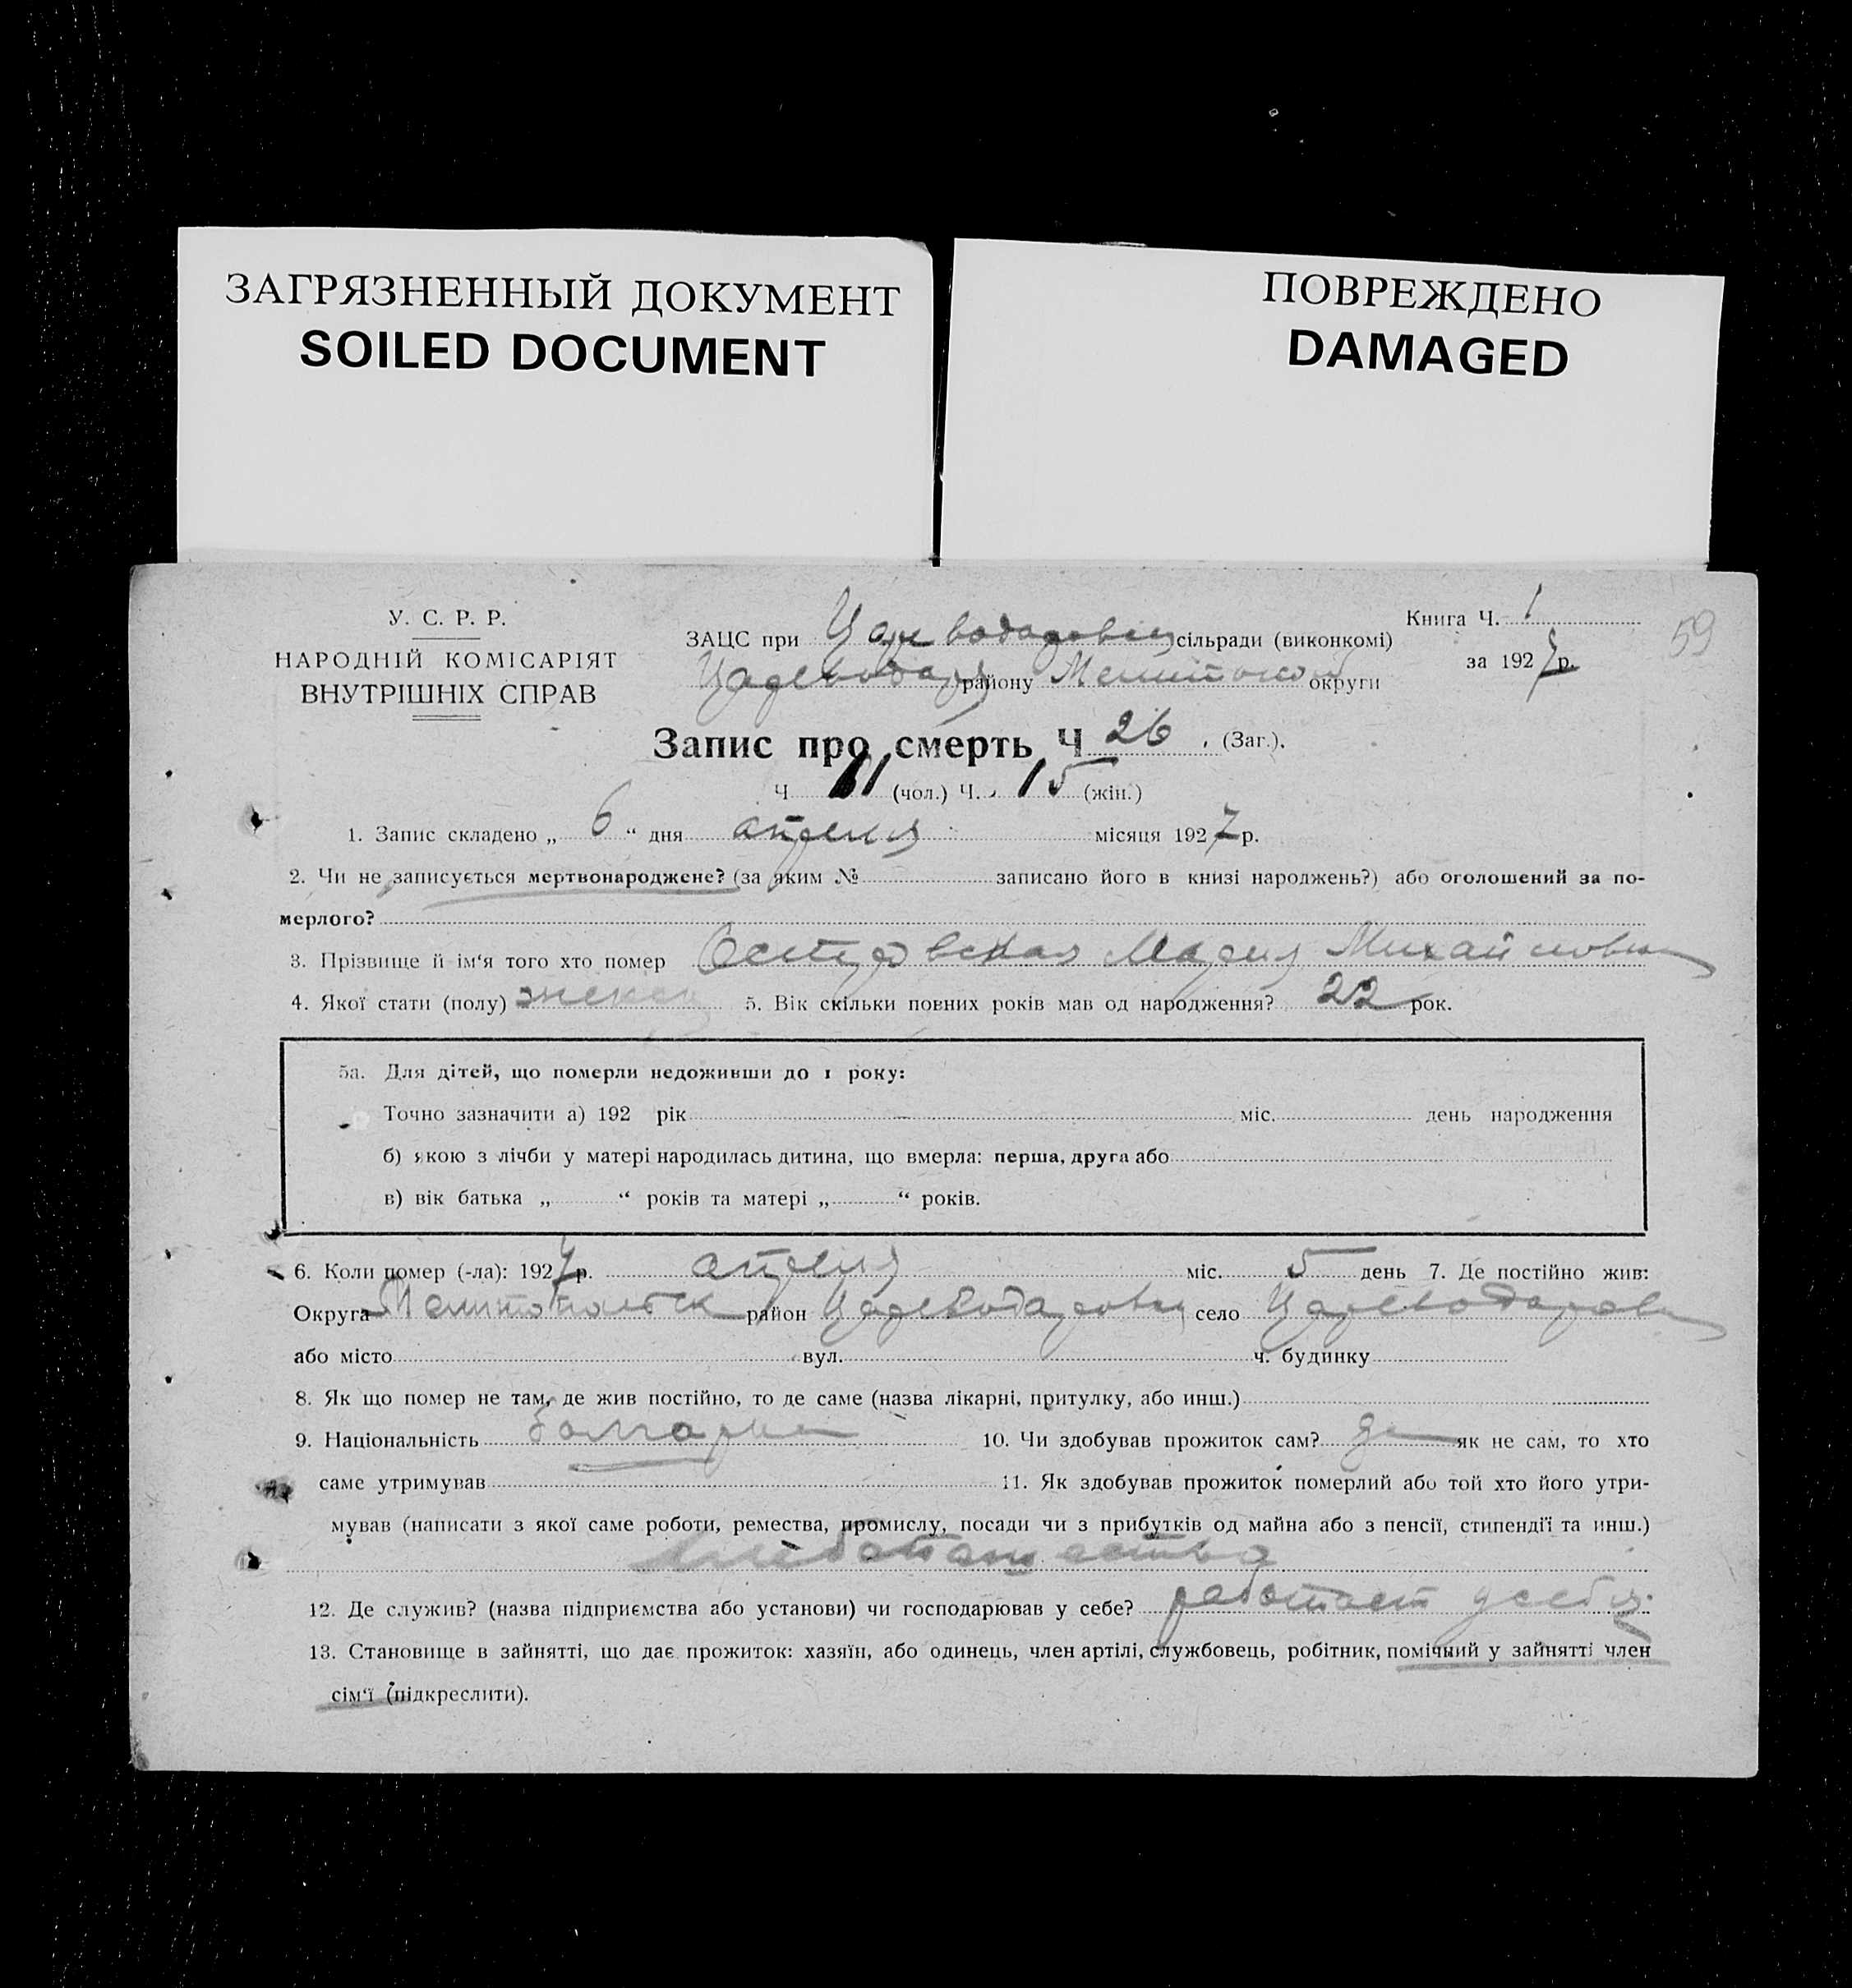 ЗАГРЯЗНЕННЫЙ ДОКУМЕНТ
SOILED DOCUMENT
ПОВРЕЖДЕНО
DAMAGED
У. С. Р. Р.
НАРОДНІЙ КОМІСАРІЯТ
ВНУТРІШНІХ СПРАВ
ЗАЦС при сільради (виконкомі)
району округи
Книга Ч. 1
за 1927 р.
59
Запис про смерть Ч 26. (Заг.).
Ч 11 (чол.) Ч. 15 (жін.)
1. Запис складено „ 6 “ дня апреля місяця 1927 р.
2. Чи не записується мертвонароджене? (за яким № записано його в книзі народжень?) або оголошений за по-
мерлого?
3. Прізвище й ім‘я того хто помер Островская Мария Михайловна
4. Якої стати (полу) женск 5. Вік скільки повних років мав од народження? 22 рок.
5а. Для дітей, що померли недоживши до 1 року:
Точно зазначити а) 192 рік міс. день народження
б) якою з лічби у матері народилась дитина, що вмерла: перша, друга або
в) вік батька „ “ років та матері „ “ років.
6. Коли помер (-ла): 1927 р. апреля міс. 5 день 7. Де постійно жив:
Округа Мелитопольск район село
або місто вул. ч. будинку
8. Як що помер не там, де жив постійно, то де саме (назва лікарні, притулку, або инш.)
9. Національність болгарка 10. Чи здобував прожиток сам? да як не сам, то хто
саме утримував 11. Як здобував прожиток померлий або той хто його утри-
мував (написати з якої саме роботи, ремества, промислу, посади чи з прибутків од майна або з пенсії, стипендії та инш.)
хлебопашества
12. Де служив? (назва підприємства або установи) чи господарював у себе? работает у себя
13. Становище в зайнятті, що дає прожиток: хазяїн, або одинець, член артілі, службовець, робітник, помічний у зайнятті член
сім‘ї (підкреслити).